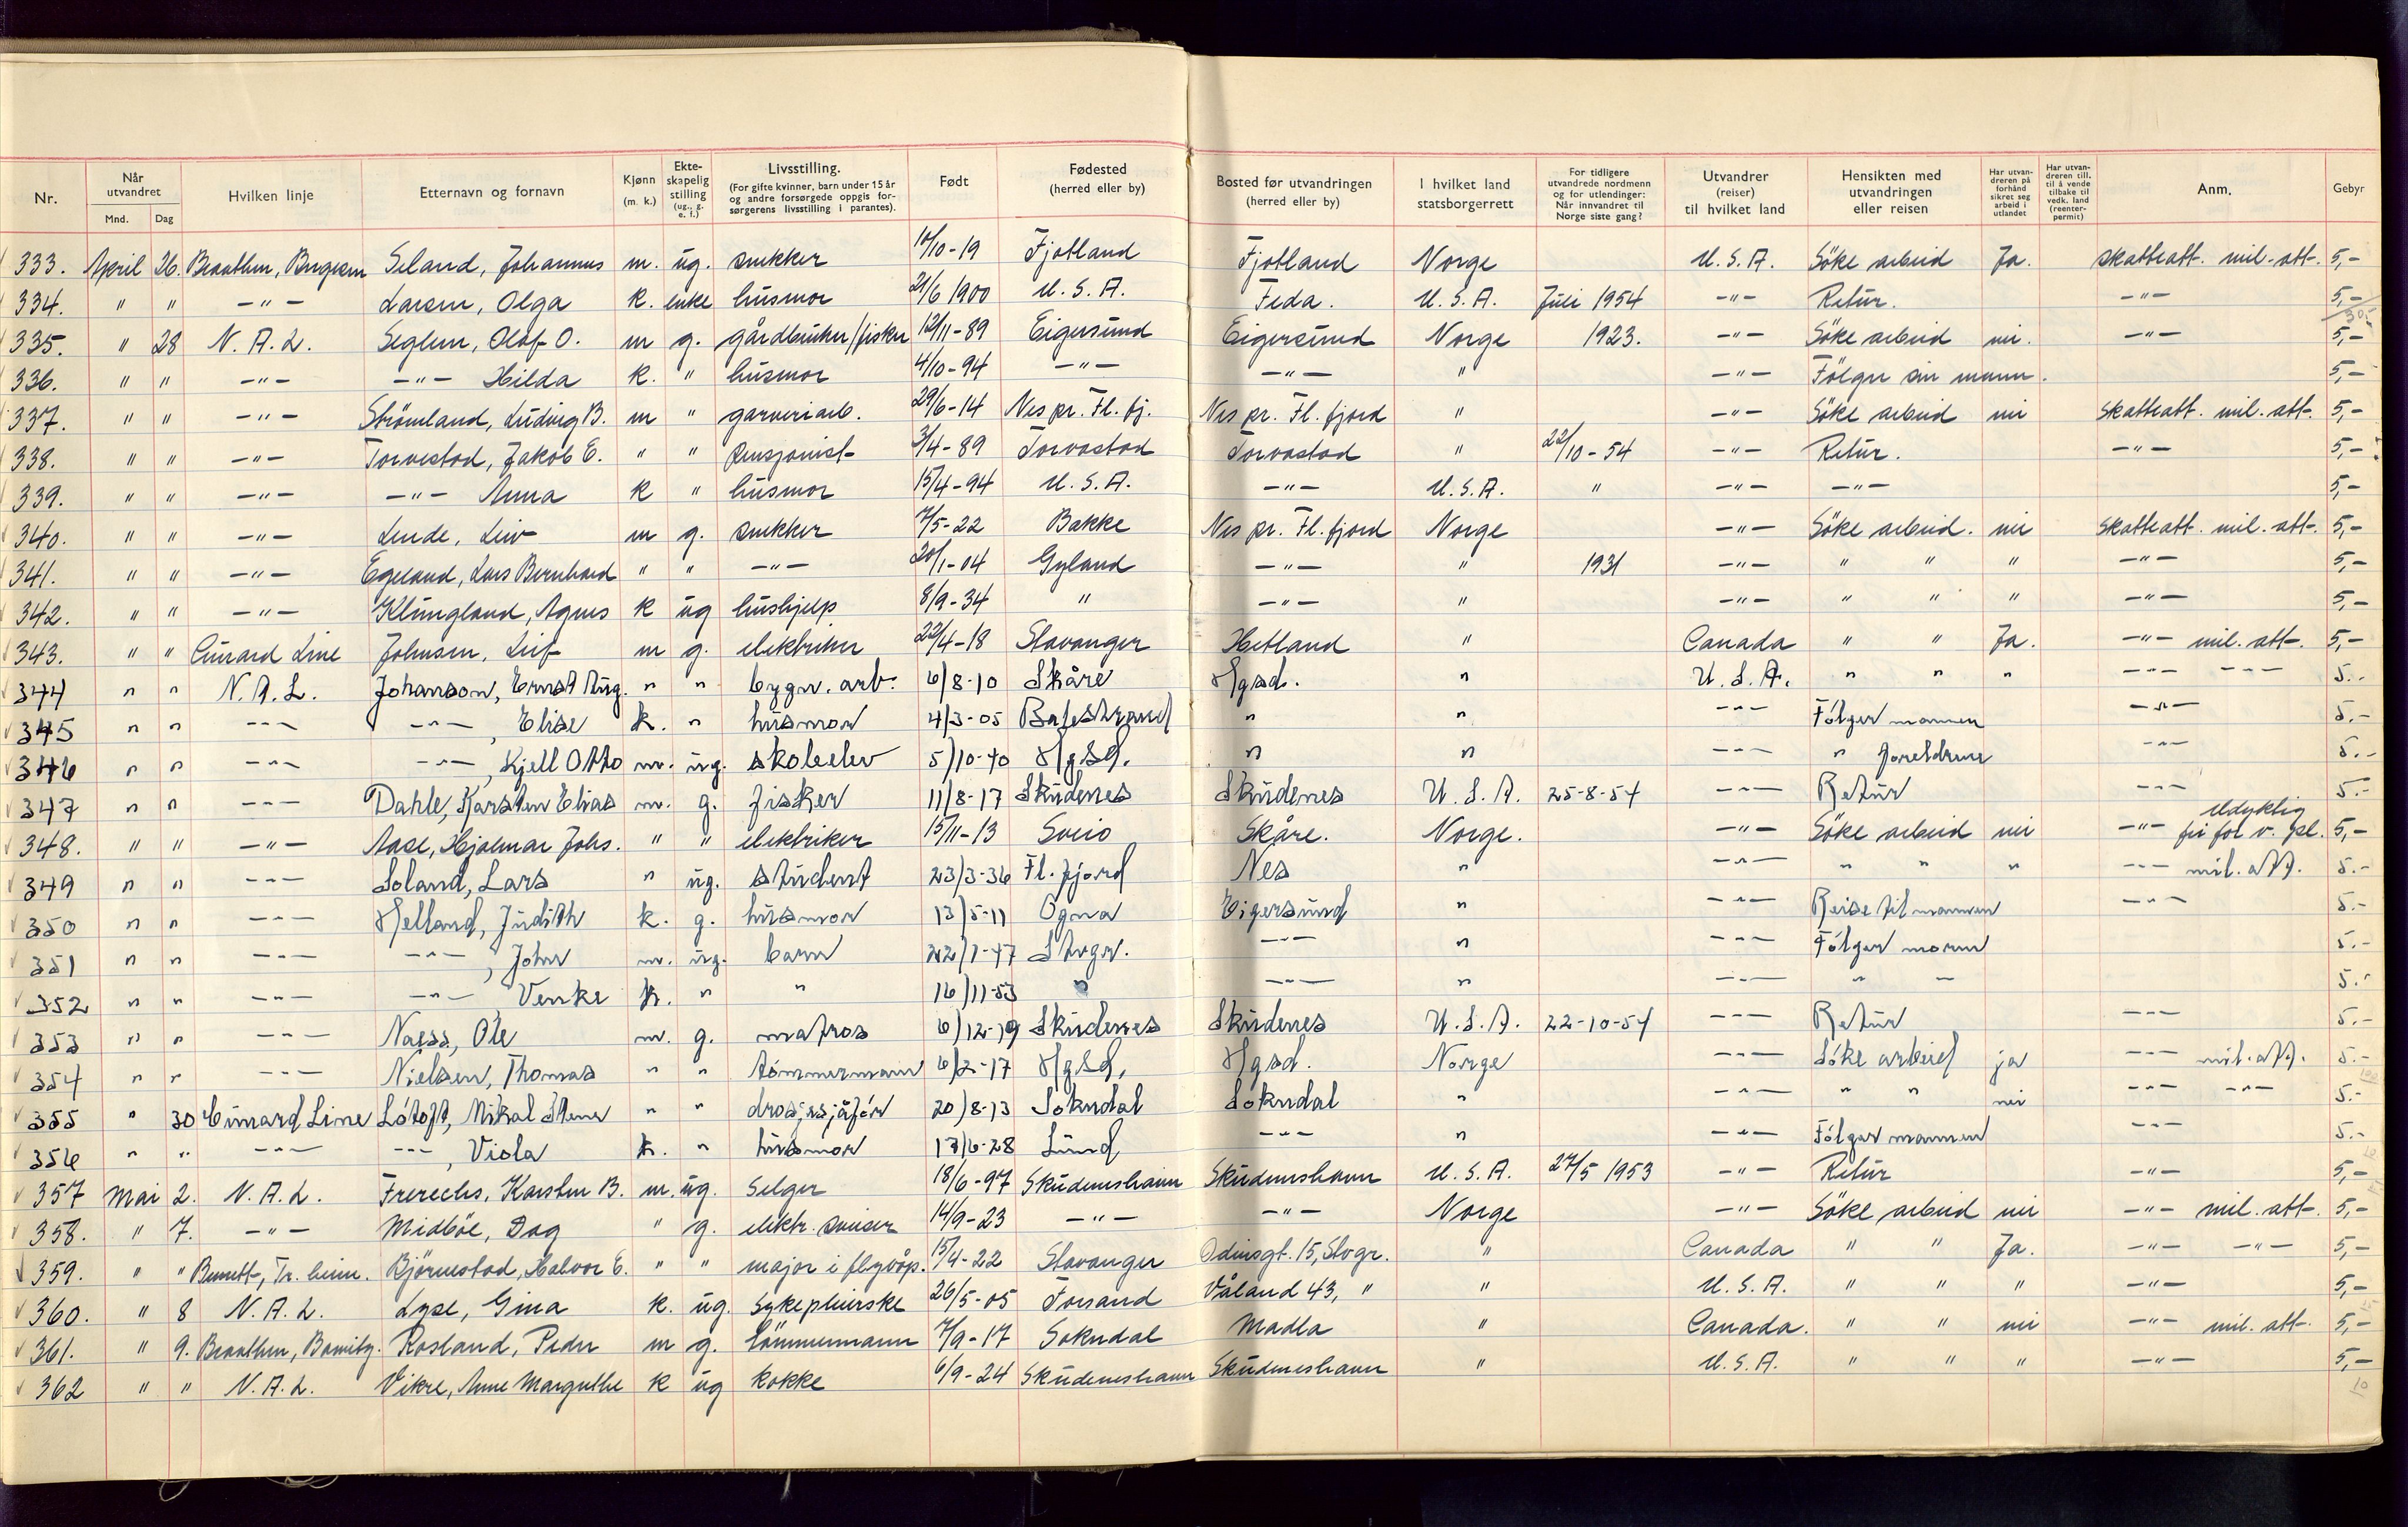 Nr. | Når utvandret Mnd. Dag | Hvilken linje | Etternavn og fornavn | Kjønn (m. k.) | Ekteskapelig stilling (ug., g. e. f.) | Livsstilling. (For gifte kvinner, barn under 15 år og andre forsørgede oppgis forsørgerens livsstilling i parantes). | Født | Fødested (herred eller by) | Bosted før utvandringen (herred eller by) | I hvilket land statsborgerrett | For tidligere utvandrede nordmenn og for utlendinger: Når innvandret til Norge siste gang? | Utvandrer (reiser) til hvilket land | Hensikten med utvandringen eller reisen | Har utvandreren på forhånd sikret seg arbeid i utlandet | Har utvandreren till. til å vende tilbake til vedk. land (reenterpermit) | Anm. | Gebyr
333. April 26. Braathen, Bergesen Seland, Johannes m. ug. snekker 14/10-19 Fjotland Fjotland Norge U.S.A. Söke arbeid Ja. skatteatt. mil.-att. 5,-
334. " " -"- Larsen, Olga k. enke husmor 21/6 1900 U.S.A. Feda. U.S.A. Juli 1954 -"- Retur. -"- 5,-
335. " 28 N.A.L. Seglem, Olaf O. m g. gårdbruker/fisker 12/11-89 Eigersund Eigersund Norge 1923. -"- Söke arbeid nei. -"- 5,-
336. " " -"- -"- Hilda k. " husmor 4/10-94 -"- -"- " -"- Fölger sin mann. 5,-
337. " " -"- Strömland, Ludvig B. m " garveriarb. 29/6-14 Nes pr. Fl. fj. Nes pr. Fl. fjord " -"- Söke arbeid nei skatteatt. mil. att. 5,-
338. " " -"- Torvestad, Jakob E. " " pensjonist 3/4-89 Torvastad Torvastad " 22/10-54 -"- Retur. -"- 5,-
339. " " -"- -"- Anna k " husmor 15/4-94 U.S.A. -"- U.S.A. " -"- -"- 5,-
340. " " -"- Lende, Leiv m g. snekker 7/5-22 Bakke Nes pr. Fl. fjord Norge -"- Söke arbeid. nei skatteatt. mil. att. 5,-
341. " " -"- Egeland, Lars Bernhard " " -"- 20/1-04 Gyland -"- " 1931 -"- " " " -"- 5,-
342. " " -"- Klungland, Agnes k ug hushjelp 8/9-34 " -"- " -"- " " " -"- 5,-
343. " " Cunard Line Johnsen, Leif m g. elektriker 22/4-18 Stavanger Hetland " Canada " " Ja. -"- mil. att. 5,-
344 " " N.A.L. Johanson, Ernst Aug. " " bygn. arb. 6/8-10 Skåre Hgsd. " U.S.A. " " " -"- -"- 5.-
345 " " -"- -"-, Elise k. " husmor 4/3-05 Balestrand " " -"- Fölger mannen -"- 5.-
346 " " -"- -"-, Kjell Otto m. ug. skoleelev 5/10-40 Hgsd. " " -"- " foreldrene -"- 5.-
347 " " -"- Dahle, Karsten Elias m. g. fisker 11/8-17 Skudenes Skudenes U.S.A. 25-8-54 -"- Retur -"- 5.-
348. " " -"- Aase, Hjalmar Johs. " " elektriker 15/11-13 Sveio Skåre. Norge. -"- Söke arbeid nei -"- Udyktig fri for v. pl. 5,-
349 " " -"- Soland, Lars " ug. student 23/3-36 Fl. fjord Nes " -"- " " " -"- mil. att. 5.-
350 " " -"- Helland, Judith k. g. husmor 13/5-11 Ogna Eigersund " -"- Reise til mannen -"- 5.-
351 " " -"- -"-, John m. ug. barn 22/1-47 Stvgr. -"- " -"- Fölger moren 5.-
352 " " -"- -"- Venke k. " " 16/11-53 " -"- " -"- " - 5.-
353 " " -"- Naess, Ole m. g. matros 6/12-19 Skudenes Skudenes U.S.A. 22-10-54 -"- Retur -"- 5.-
354 " " -"- Nielsen, Thomas " " tömmermann 6/2-17 Hgsd. Hgsd. Norge -"- Söke arbeid ja -"- mil. att. 5.-
355 " 30 Cunard Line Lótoft, Mikal " " drosjesjåför 20/8-13 Sokndal Sokndal " -"- " " nei -"- -"- 5.-
356 " " -"- -"-, Viola k. " husmor 17/6-28 Lund -"- " -"- Fölger mannen -"- 5.-
357 Mai 2. N.A.L. Frerechs, Karsten B. m. ug. Selger 18/6-97 Skudeneshavn Skudeneshavn U.S.A. 27/5 1953 -"- Retur -"- 5,-
358. " 7. -"- Midböe, Dag " g. elektr. sveiser 14/9-23 -"- -"- Norge -"- Söke arbeid nei -"- mil. att. 5,-
359. " " Bennett, Tr. heim. Björnestad, Halvor E. " " major i flyvåp. 15/4-22 Stavanger Odinsgt. 15, Stvgr. " Canada " " Ja. -"- -"- 5,-
360. " 8 N.A.L. Lyse, Gina k. ug. sykepleierske 26/5-05 Forsand Våland 43, " " U.S.A. " " " -"- 5,-
361. " 9. Braathen, Rosland, Peder m g. tömmermann 7/9-17 Sokndal Madla " Canada. " " nei -"- mil. att. 5,-
362 " " N.A.L. Vikre, Anne Margrethe k ug kokke 6/9-24 Skudeneshavn Skudeneshavn " U.S.A. " " " -"- 5,-
10